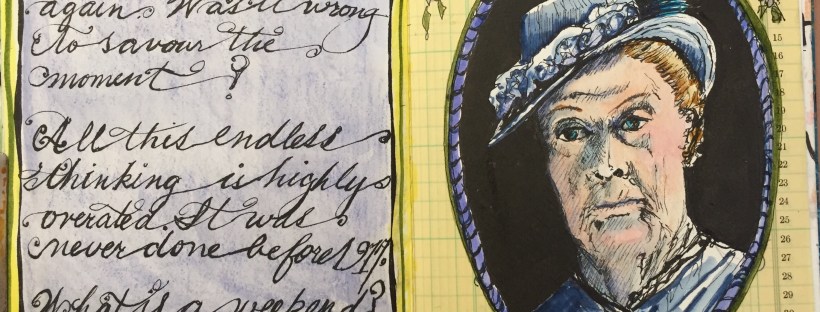 again. Was it wrong
to savour the
moment?
All this endless
thinking is highly
overated. It was
never done before 1917.
What is a weekend?
15
16
17
18
19
20
21
22
23
24
25
26
27
28
29